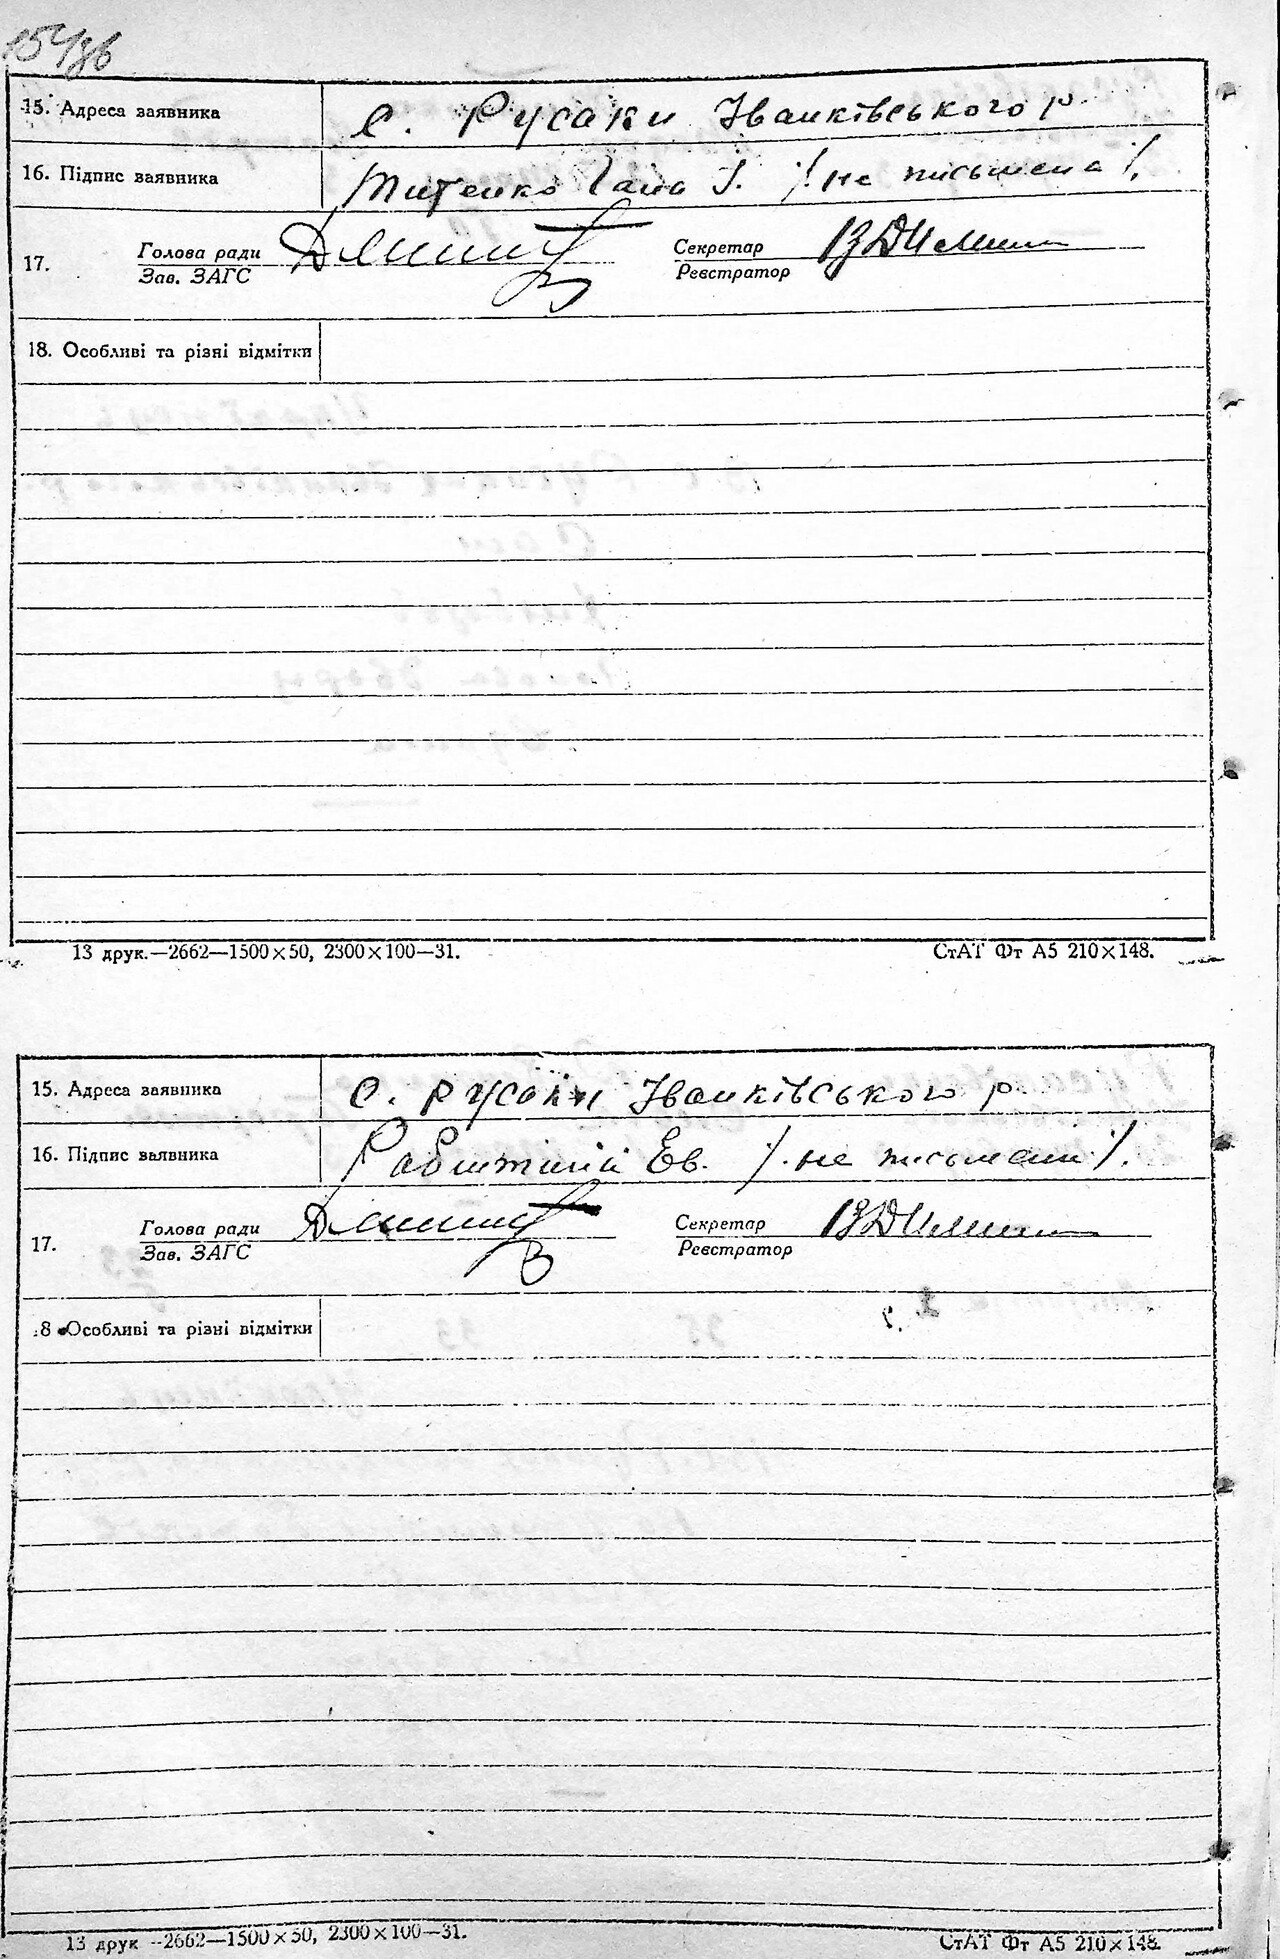 15. Адреса заявника с. Русаки Іванківського р.
16. Підпис заявника Титенко Гана І. /. не письмена /.
17. Голова ради Секретар
Зав. ЗАГС Реєстратор
18. Особливі та різні відмітки
13 друк.—2662—1500×50, 2300×100—31. СтАТ Фт А5 210×148.
15. Адреса заявника с. Русаки Іванківського р.
16. Підпис заявника Ев. /. не письмений /.
17. Голова ради Секретар
Зав. ЗАГС Реєстратор
8 Особливі та різні відмітки
13 друк —2662—1500×50, 2300×100—31. СтАТ Фт А5 210×148.